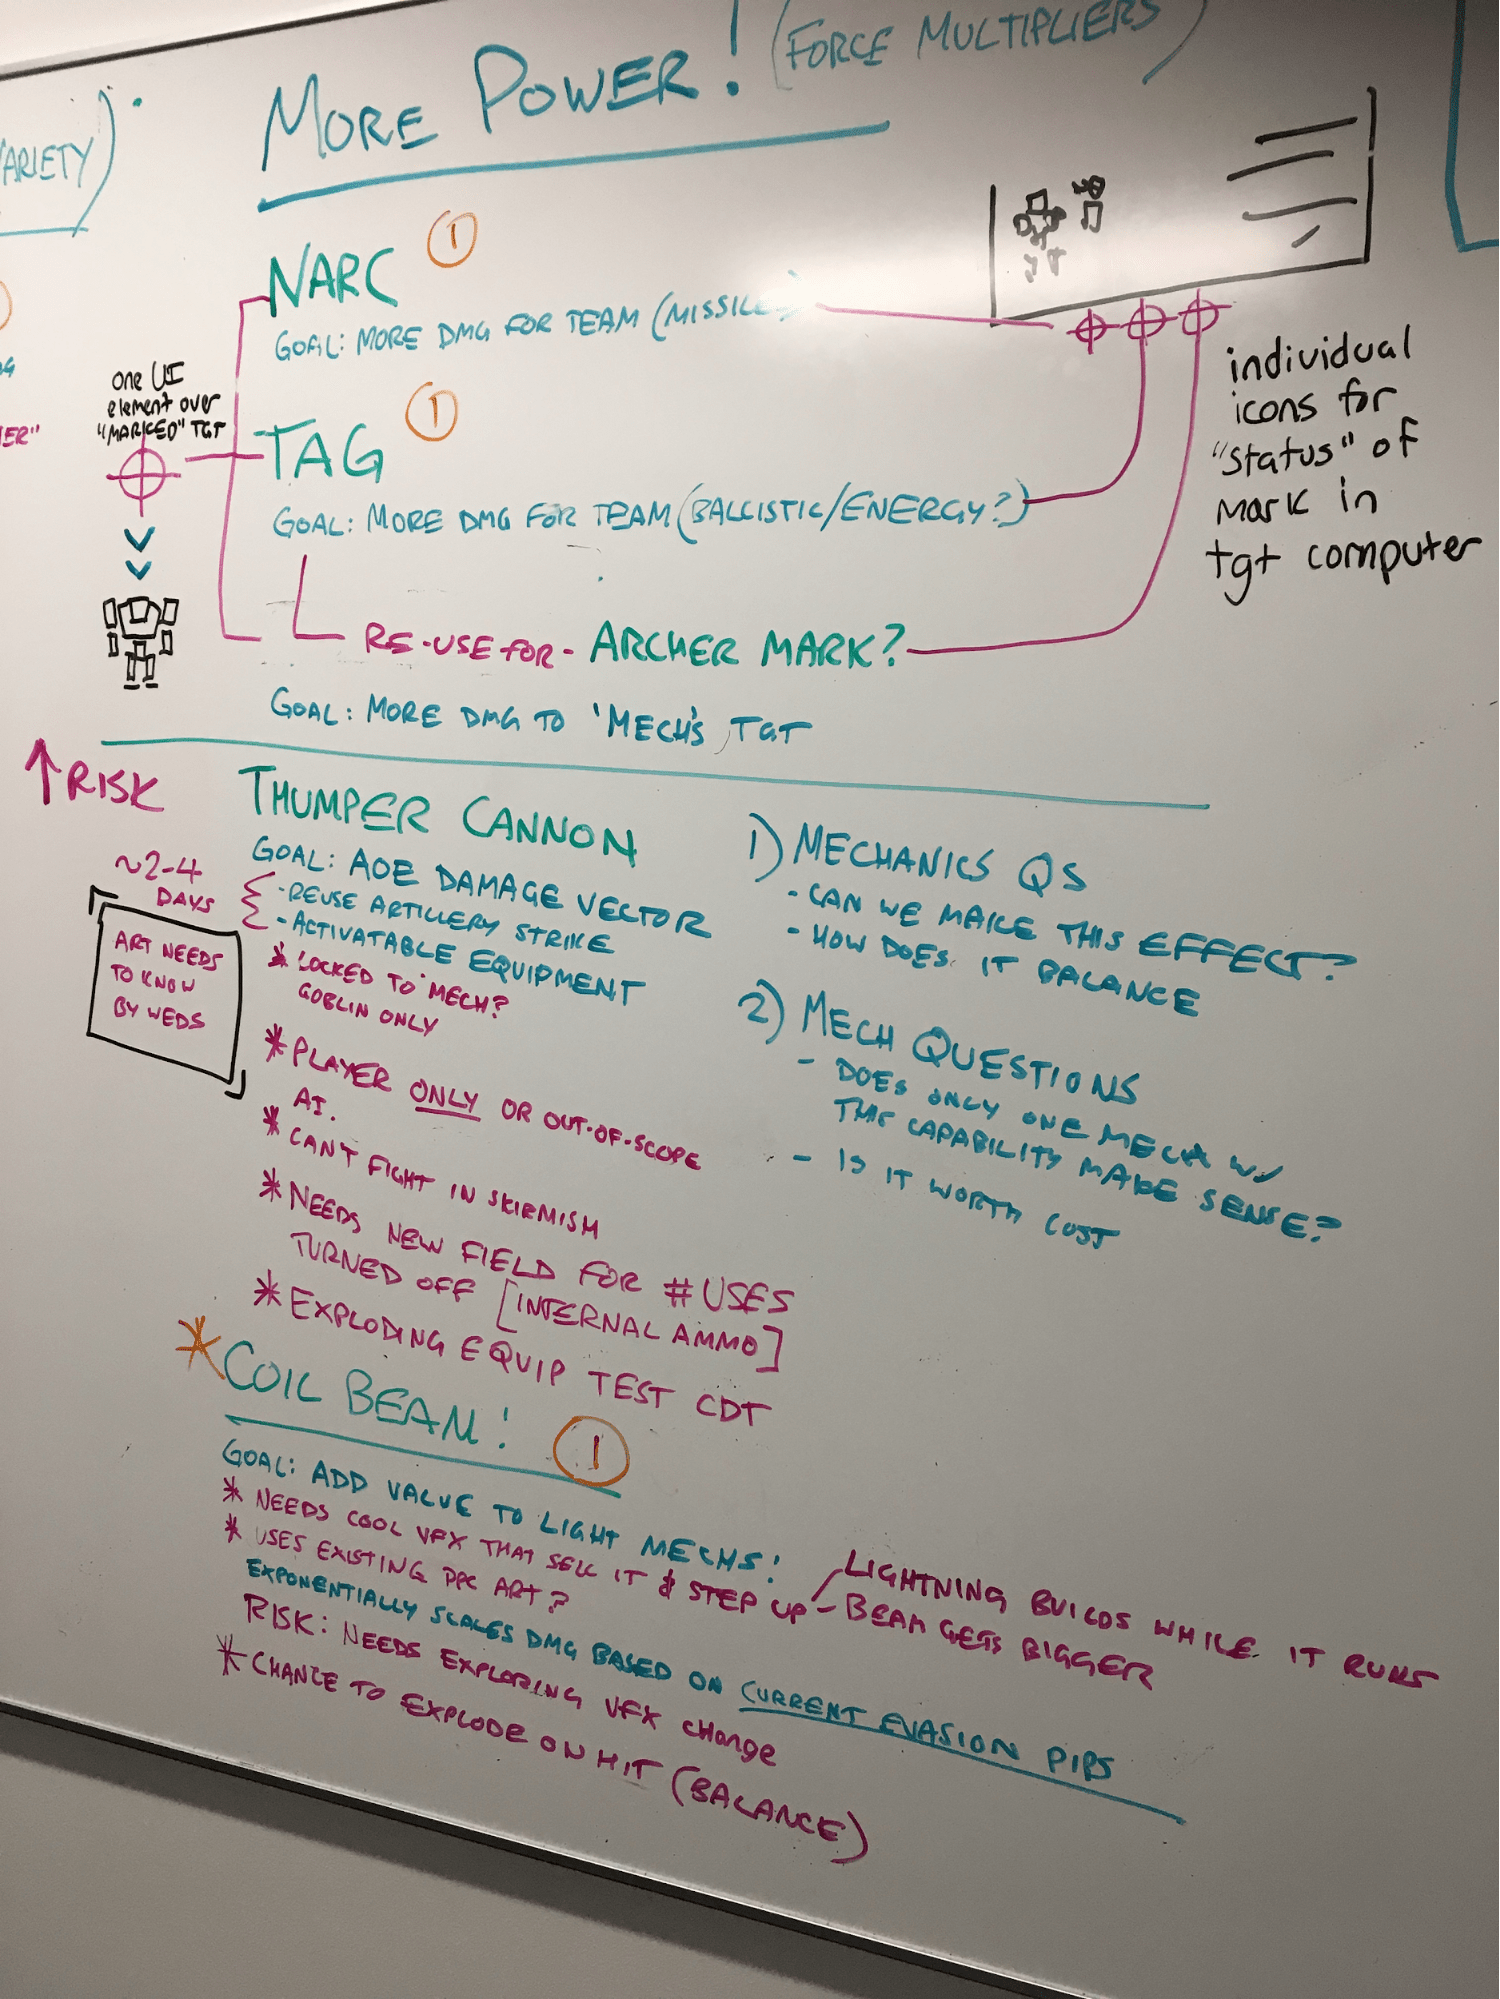 MORE POWER! (FORCE MULTIPLIERS)
VARIETY)
NARC ①
GOAL: MORE DMG FOR TEAM (MISSILE
one UI
element over
"MARKED" TGT
TAG ①
GOAL: MORE DMG FOR TEAM (BALLISTIC/ENERGY?)
RE-USE-FOR- ARCHER MARK?
GOAL: MORE DMG TO 'MECH'S TGT
individual
icons for
"status" of
mark in
tgt computer
↑RISK
THUMPER CANNON
GOAL: AOE DAMAGE VECTOR
-REUSE ARTILLERY STRIKE
-ACTIVATABLE EQUIPMENT
~2-4
DAYS
ART NEEDS
TO KNOW
BY WEDS
* LOCKED TO 'MECH?
GOBLIN ONLY
* PLAYER ONLY OR OUT-OF-SCOPE
AI.
* CAN'T FIGHT IN SKIRMISM
* NEEDS NEW FIELD FOR # USES
TURNED OFF [INTERNAL AMMO]
* EXPLODING EQUIP TEST CDT
1) MECHANICS QS
- CAN WE MAKE THIS EFFECT?
- HOW DOES IT BALANCE
2) MECH QUESTIONS
- DOES ONLY ONE MECH W/
THIS CAPABILITY MAKE SENSE?
- IS IT WORTH COST
* COIL BEAM! ①
GOAL: ADD VALUE TO LIGHT MECHS!
* NEEDS COOL VFX THAT SELL IT & STEP UP
LIGHTNING BUILDS WHILE IT RUNS
- BEAM GETS BIGGER
* USES EXISTING PPC ART?
EXPONENTIALLY SCALES DMG BASED ON CURRENT EVASION PIPS
RISK: NEEDS EXPLORING VFX CHANGE
* CHANCE TO EXPLODE ON HIT (BALANCE)